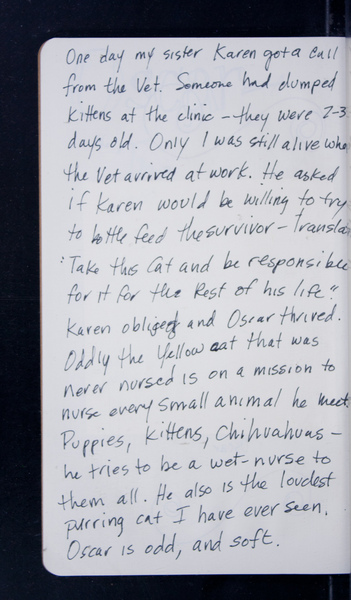 One day my sister Karen got a call
from the Vet. Someone had dumped
kittens at the clinic - they were 2-3
days old. Only 1 was still alive whe
the Vet arrived at work. He asked
if Karen would be willing to try
to bottle feed the survivor - Transla
"Take this Cat and be responsible
for it for the Rest of his life".
Karen obliged and Oscar thrived.
Oddly the Yellow cat that was
never nursed is on a mission to
nurse every small animal he meet
Puppies, Kittens, Chihuahuas -
he tries to be a wet-nurse to
them all. He also is the loudest
purring cat I have ever seen.
Oscar is odd, and soft.